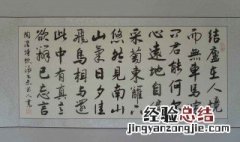 結廬在人境
而無車馬喧
問君能何尔
心遠地自偏
采菊東籬下
悠然見南山
山氣日夕佳
飛鳥相与還
此中有真意
欲辯已忘言
陶淵明
经验总结
jingyanzongjie.com